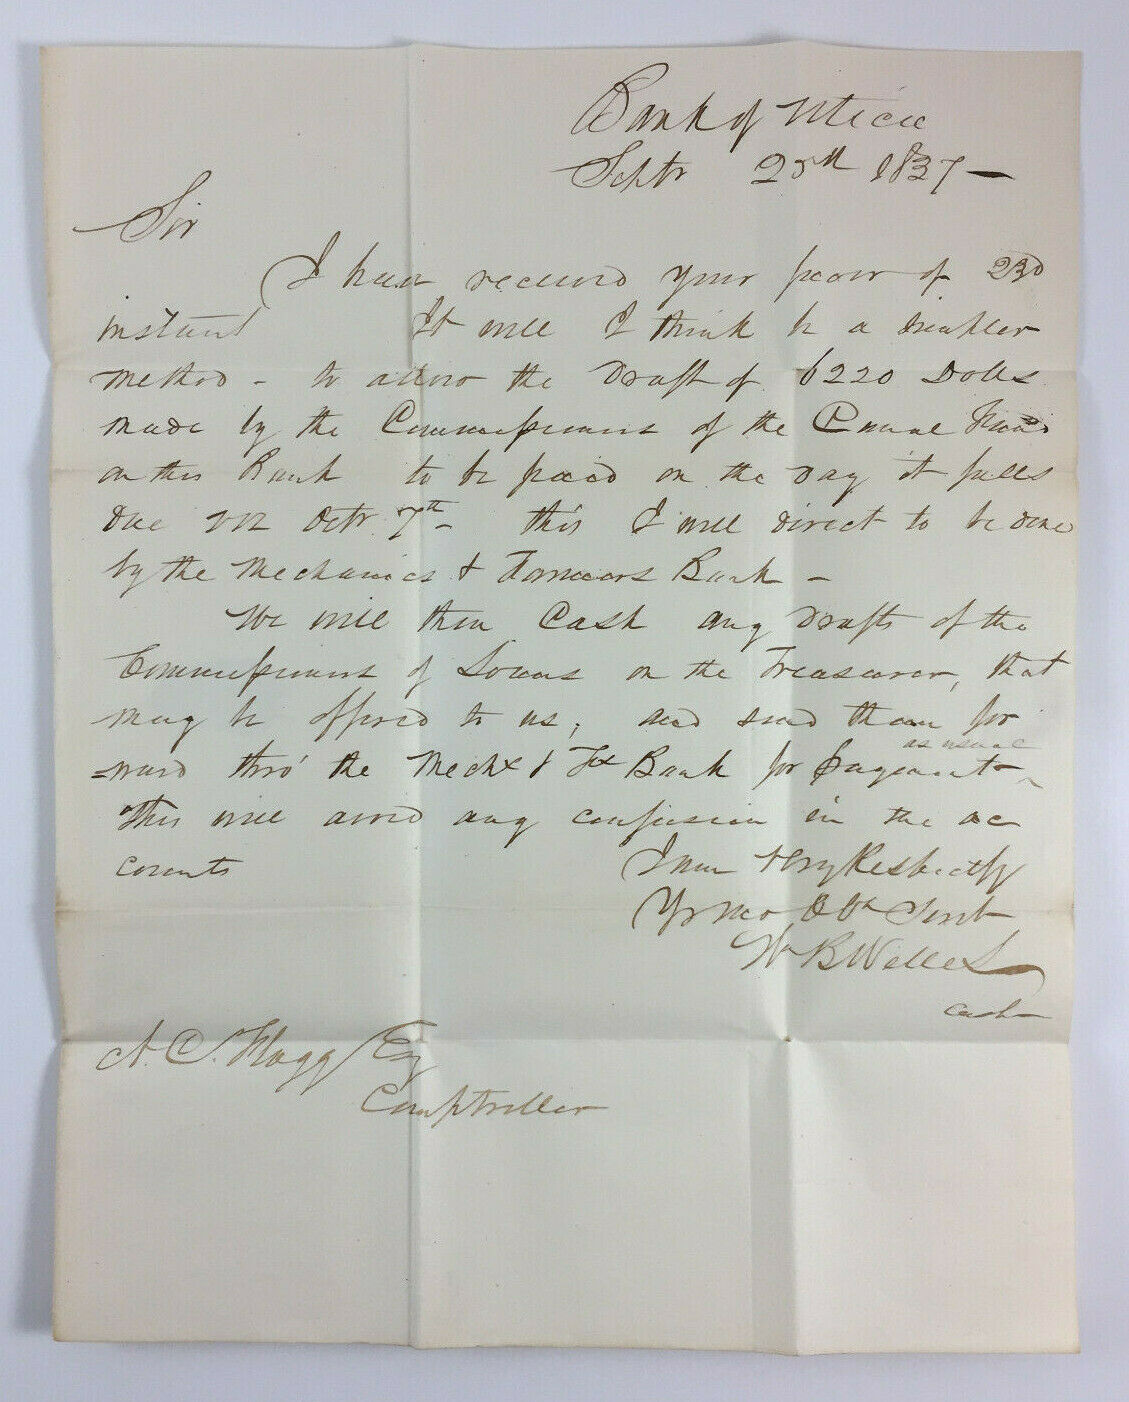 Bank of Utica
Septr 25th 1837 —
Sir
I have received your favor of 23d
instant It will I think be a simpler
method - to allow the Draft of 6220 Dolls
made by the Commissioners of the Canal Fund
on this Bank to be paid on the Day it falls
due viz Octr 7th - this I will direct to be done
by the Mechanics & Farmers Bank -
We will then Cash any Drafts of the
Commissioners of Loans on the Treasurer, that
may be offered to us, and send them for
=ward thro' the Mechs & Frs Bank for payment as usual
This will avoid any confusion in the ac
counts
I am Very Respectfy
Yr Mo Obt Servt
Wm B Welles
Cashr
A. C. Flagg Esq
Comptroller